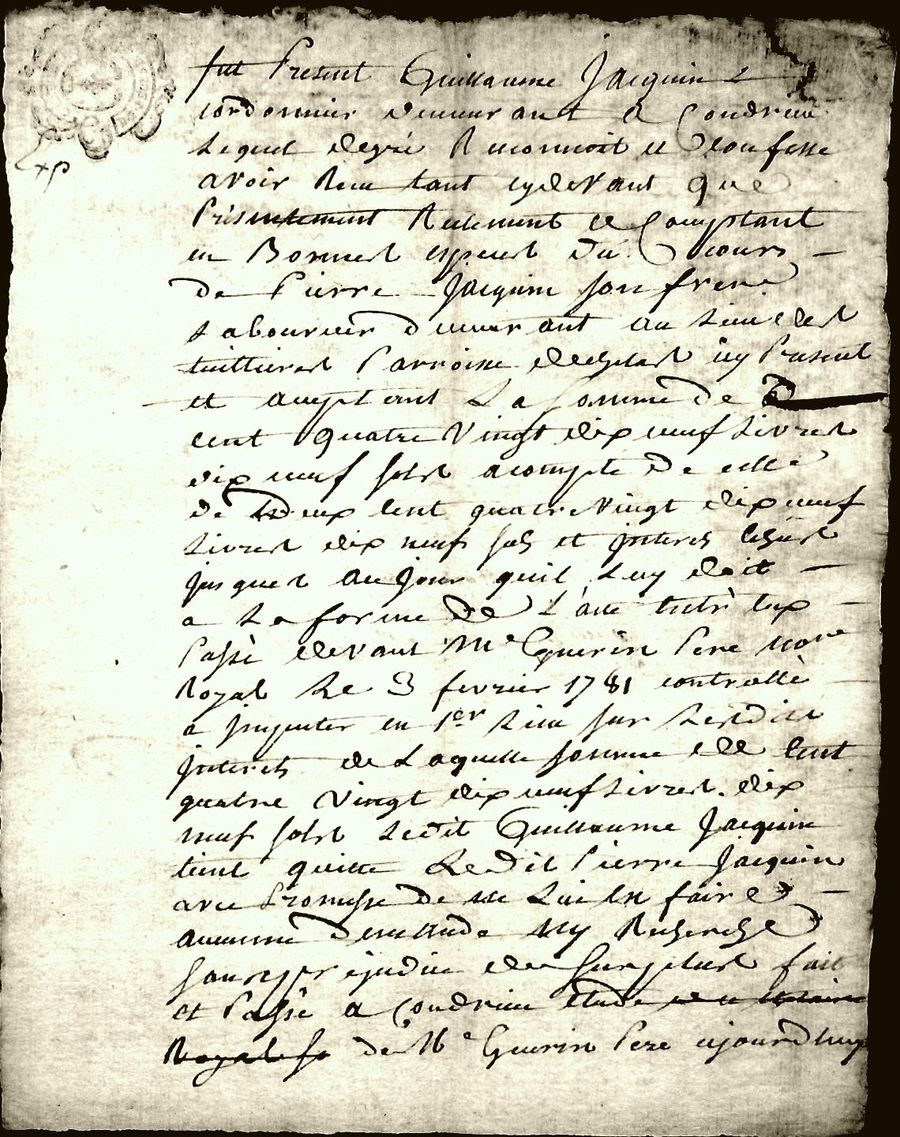 fut Present Guillaume Jacquin
cordonnier demeurant a Condrieu
Lequel degré Reconnoit et Confesse
avoir Receu tant cydevant que
Présentement Reelement et Comptant
en Bonnes especes du Cours
de Pierre Jacquin son frere
Laboureur demeurant au Lieu des
tuillieres Parroisse icy Present
et aceptant La Somme de
cent quatre Vingt dix neuf Livres
dix neuf sols acompte de celle
de deux Cent quatre Vingt dix neuf
Livres dix neuf sols et jnterets
jusques au jour quil Luy doit
a La forme de L'acte
Passé devant Me Guerin Pere nore
Royal Le 3 fevrier 1781 controllé
a jmputer en 1er Lieu sur Lesdits
jnterets de Laquelle somme de Cent
quatre Vingt dix neuf Livres dix
neuf sols Ledit Guillaume Jacquin
tient quitte Ledit Pierre Jacquin
avec Promesse de ne Lui En faire
aucune demande Ny Recherche
sans prejudice du Surplus fait
et Passé a Condrieu étude
Royal de Me Guerin Pere cejourdhuy